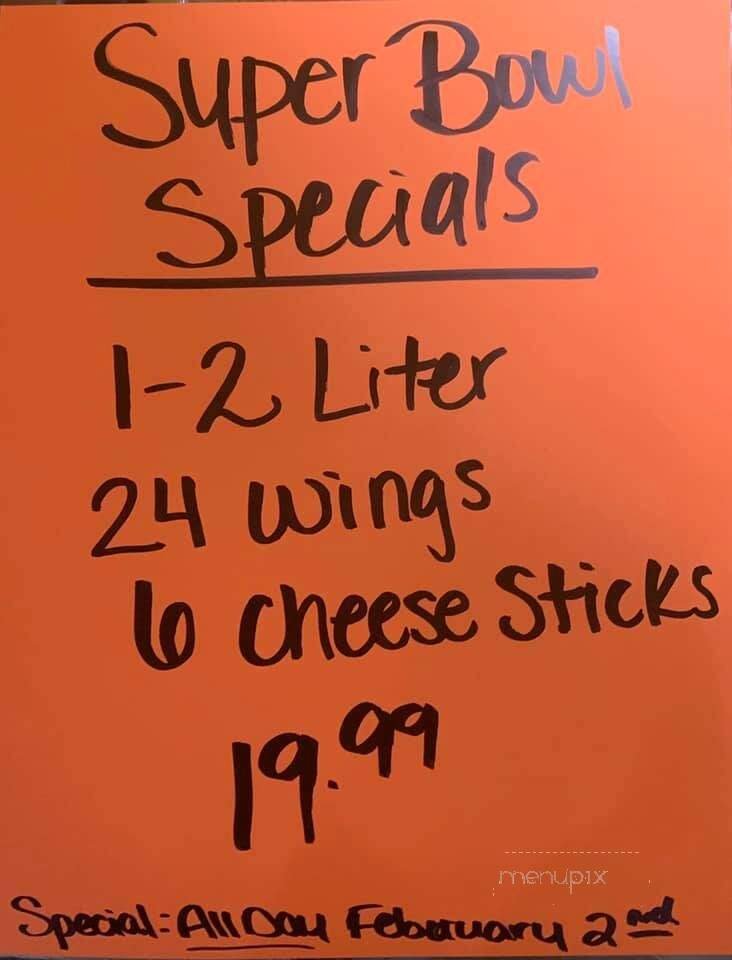 Super Bowl
Specials
1-2 Liter
24 wings
6 cheese Sticks
19.99
menupix
Special: All Day February 2nd